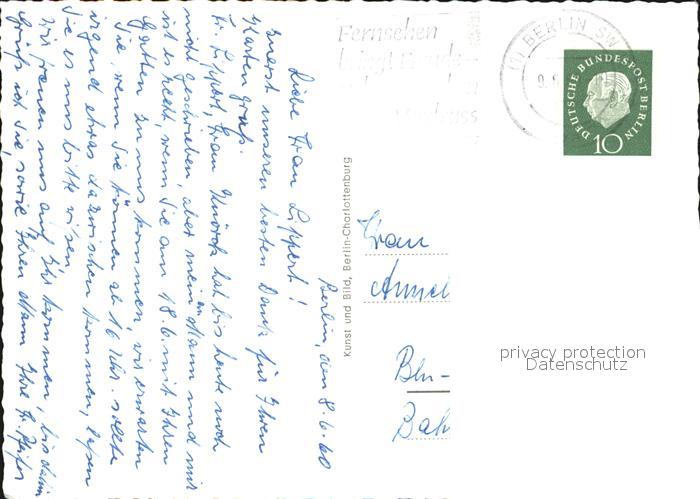 Berlin, den 8.6.60
Liebe Frau Lippert!
Zuerst unseren besten Dank für Ihren
Kartengruß.
Fr. Lippert, Frau hat bis heute noch
nicht geschrieben, aber mein Mann und mir
ist es recht, wenn Sie am 18.6. mit Ihren
Gatten zu uns kommen, wir erwarten
Sie, wenn Sie können ab 16 Uhr. sollte
irgend etwas dazwischen kommen, lassen
Sie es uns bitte wissen
Wir freuen uns auf Ihr kommen, bis dahin
grüße ich Sie, sowie Ihren Mann Ihre
Kunst und Bild, Berlin-Charlottenburg
Fernsehen
bringt
(1) BERLIN SW
DEUTSCHE BUNDESPOST BERLIN
10
Frau
Bln-
privacy protection
Datenschutz